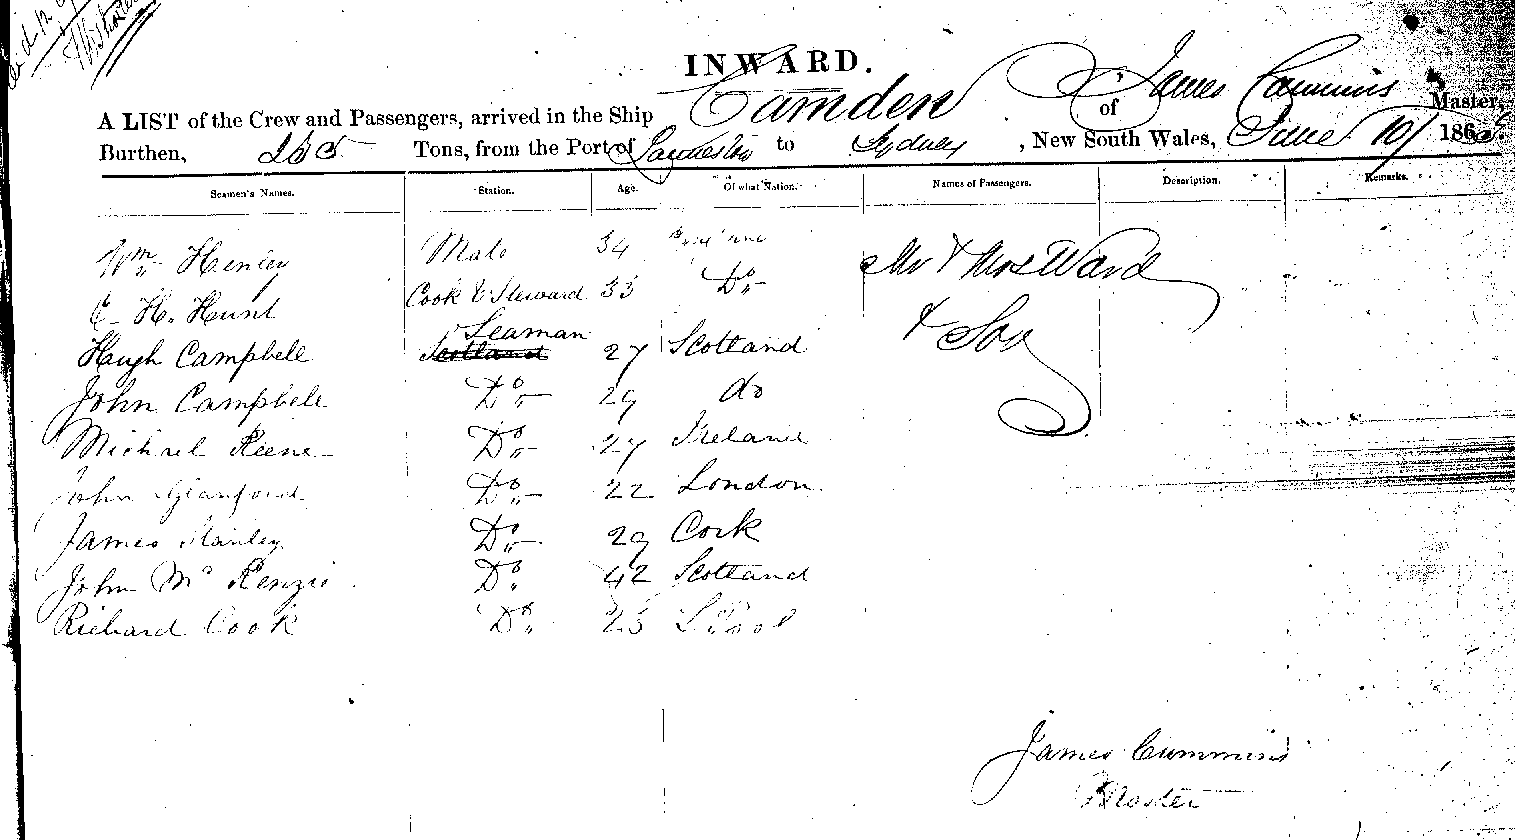 INWARD.
A LIST of the Crew and Passengers, arrived in the Ship Camden of James Cummins Master,
Burthen, Tons, from the Port of Launceston to Sydney, New South Wales, June 10/ 186
Seamen's Names. Station. Age. Of what Nation. Names of Passengers. Description. Remarks.
Wm Henley Mate 34 Mr & Mrs Ward
C. H. Hunt Cook & Steward 33 Do
& Son
Seaman
Hugh Campbell Scotland 27 Scotland
John Campbell Do 29 do
Michael Keene Do 27 Ireland
John Do 22 London
James Stanley Do 29 Cork
John McKenzie Do 42 Scotland
Richard Cook Do 25 L'Pool
James Cummins
Master